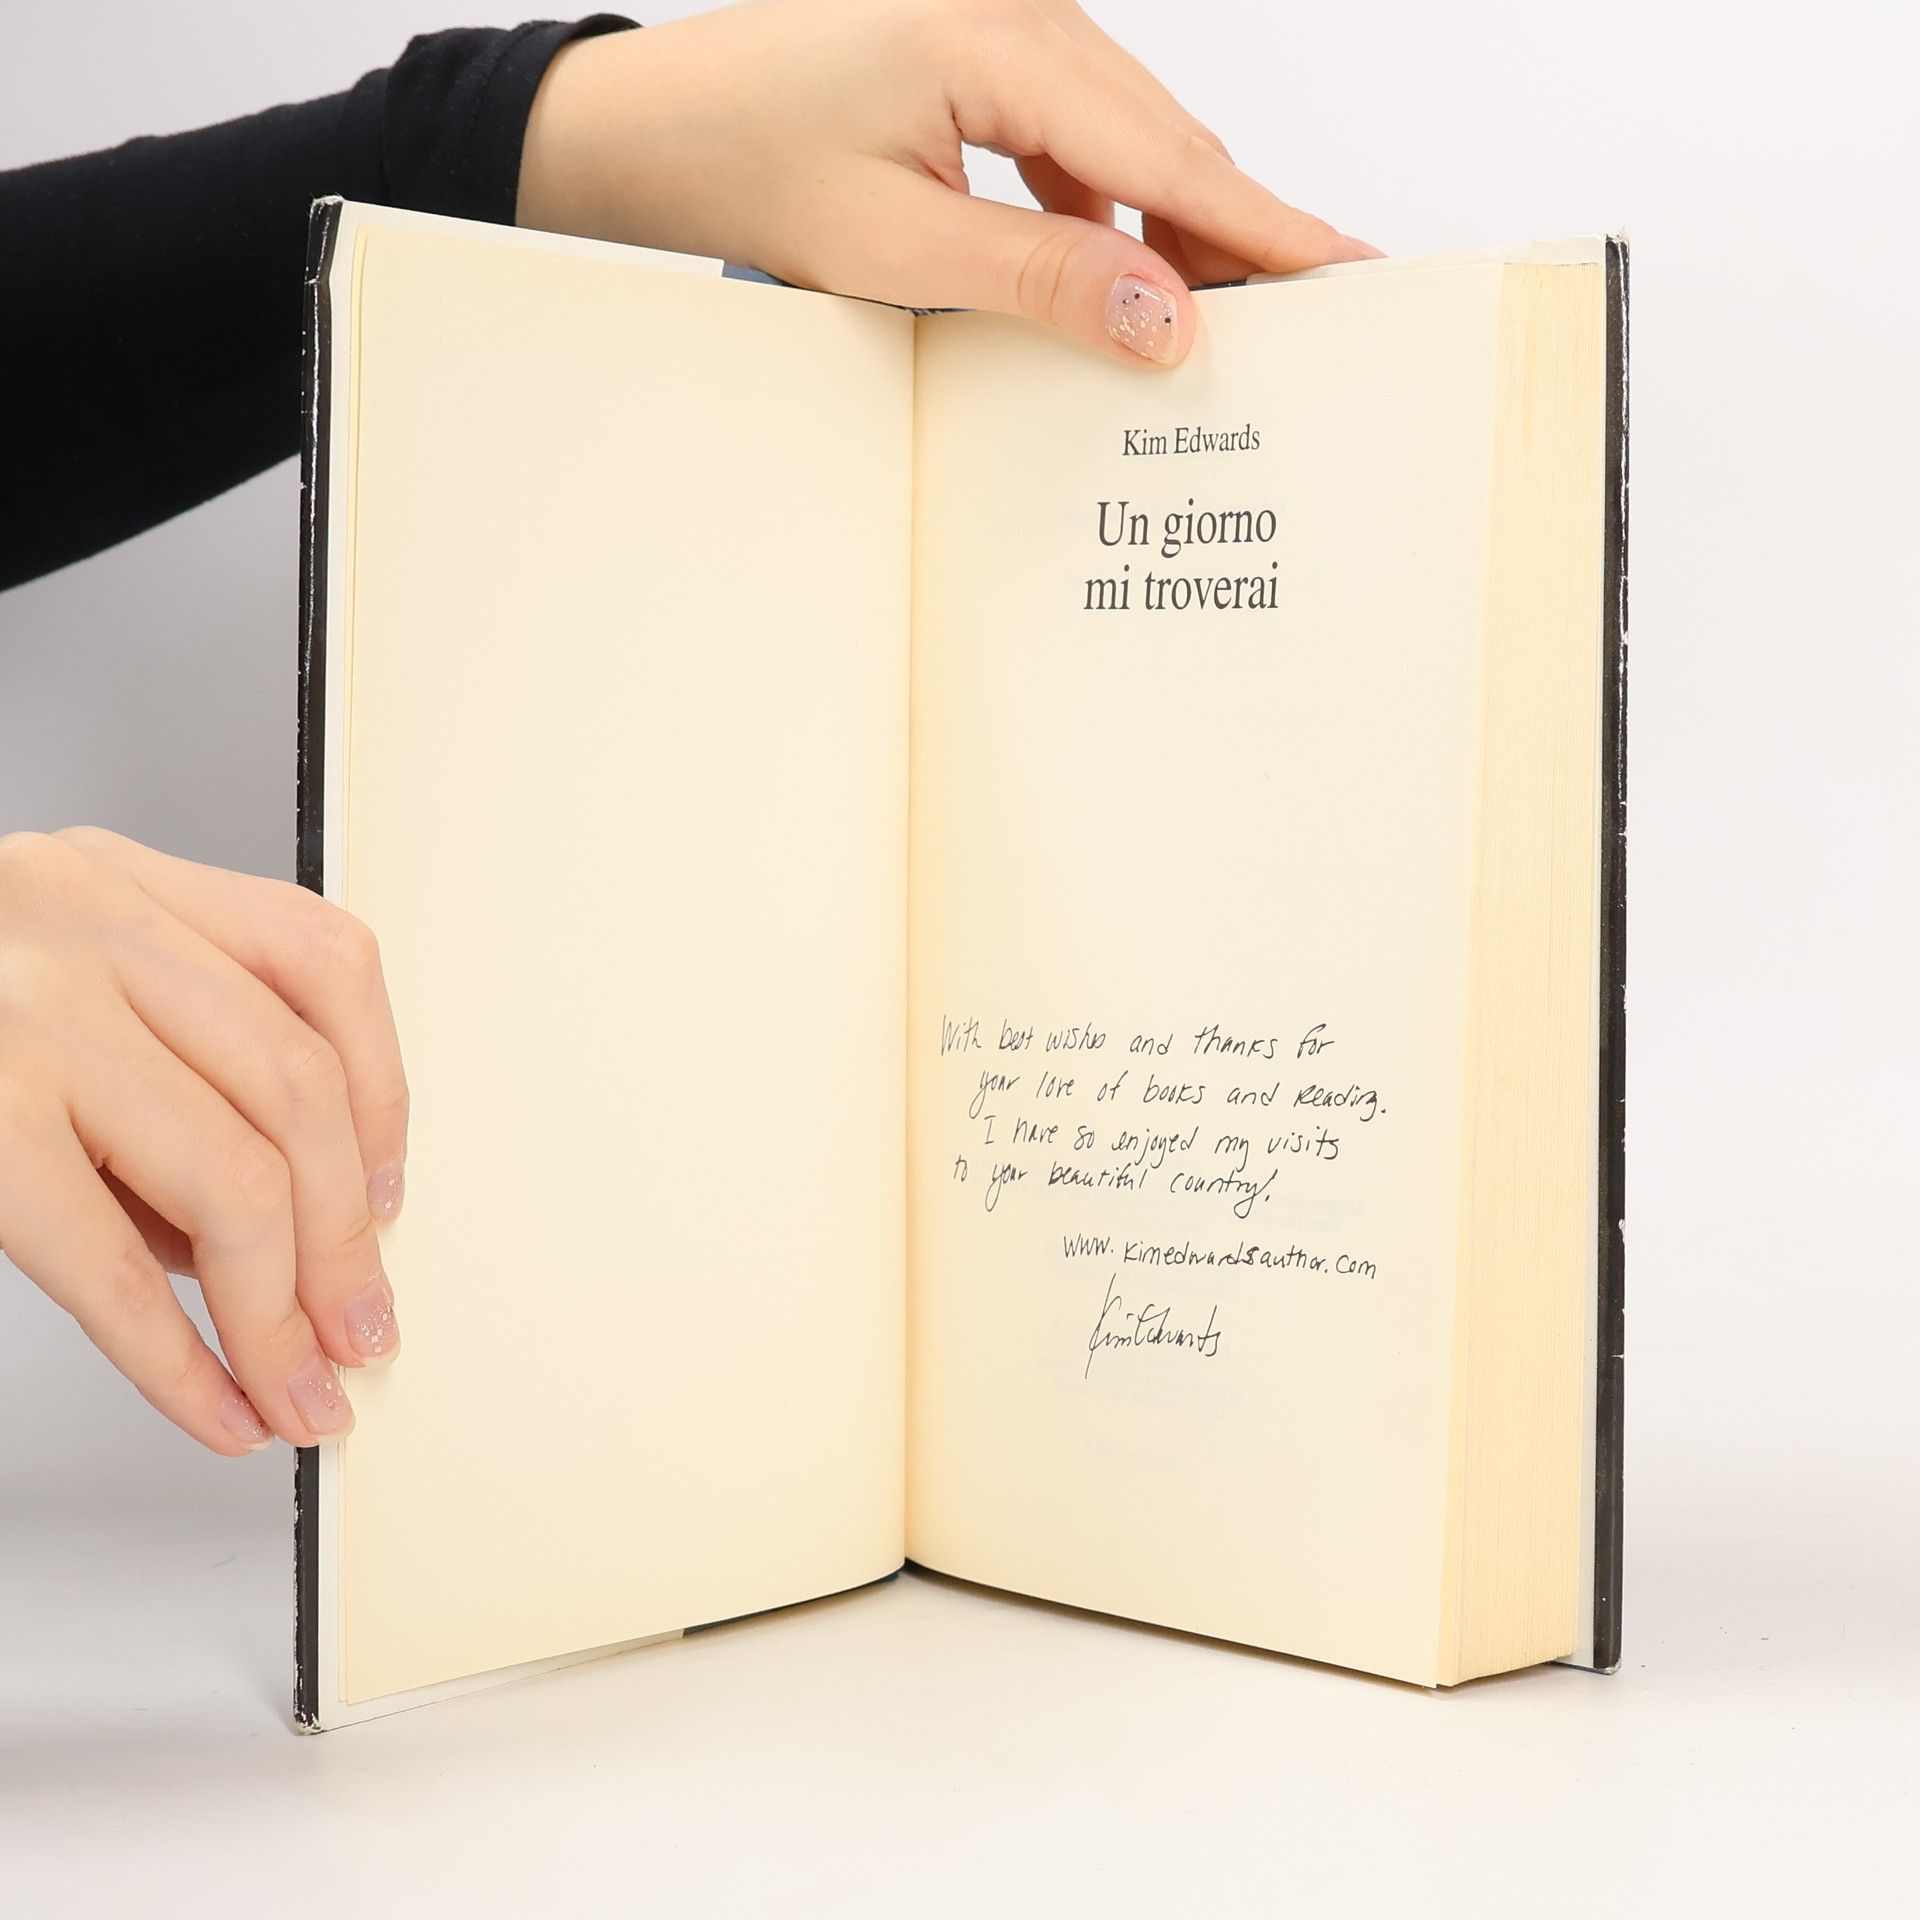 Kim Edwards
Un giorno
mi troverai
With best wishes and thanks for
your love of books and reading.
I have so enjoyed my visits
to your beautiful country!
www.kimedwardsauthor.com
Kim Edwards